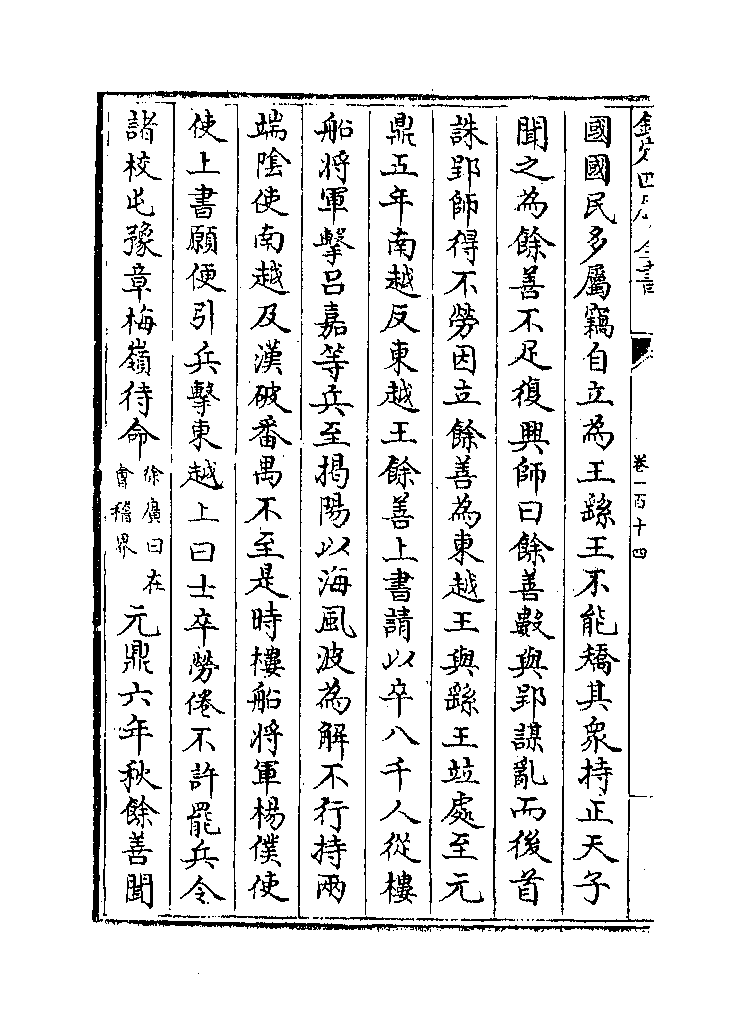 欽定四庫全書
卷一百十四
國國民多屬竊自立為王繇王不能矯其衆持正天子
聞之為餘善不足復興師曰餘善數與郢謀亂而後首
誅郢師得不勞因立餘善為東越王與繇王竝處至元
鼎五年南越反東越王餘善上書請以卒八千人從樓
船將軍擊吕嘉等兵至揭陽以海風波為解不行持兩
端隂使南越及漢破番禺不至是時樓船將軍楊僕使
使上書願便引兵擊東越上曰士卒勞倦不許罷兵令
諸校屯豫章梅嶺待命徐廣曰在會稽界元鼎六年秋餘善聞